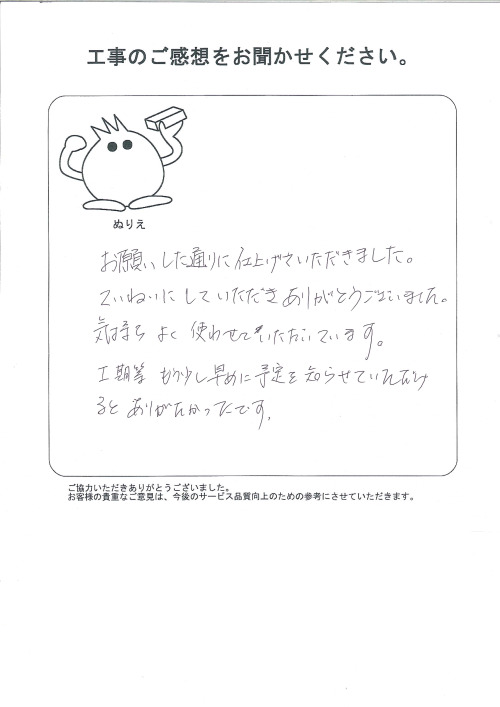 工事のご感想をお聞かせください。
ぬりえ
お願いした通りに仕上げていただきました。
ていねいにしていただきありがとうございました。
気持ちよく使わせていただいています。
工期等もう少し早めに予定を知らせていただけ
るとありがたかったです。
ご協力いただきありがとうございました。
お客様の貴重なご意見は、今後のサービス品質向上のための参考にさせていただきます。